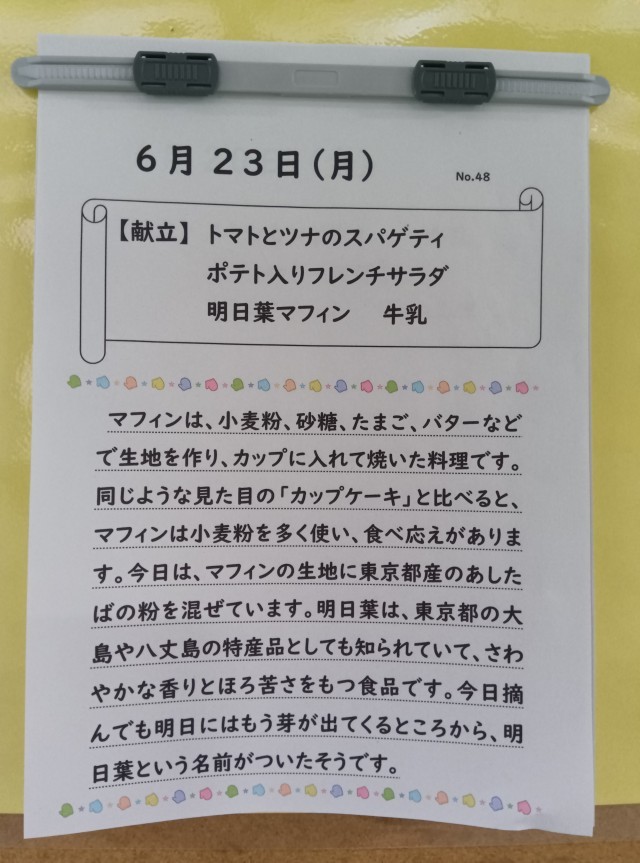 6月23日(月)
No.48
【献立】 トマトとツナのスパゲティ
ポテト入りフレンチサラダ
明日葉マフィン 牛乳
マフィンは、小麦粉、砂糖、たまご、バターなど
で生地を作り、カップに入れて焼いた料理です。
同じような見た目の「カップケーキ」と比べると、
マフィンは小麦粉を多く使い、食べ応えがありま
す。今日は、マフィンの生地に東京都産のあした
ばの粉を混ぜています。明日葉は、東京都の大
島や八丈島の特産品としても知られていて、さわ
やかな香りとほろ苦さをもつ食品です。今日摘
んでも明日にはもう芽が出てくるところから、明
日葉という名前がついたそうです。